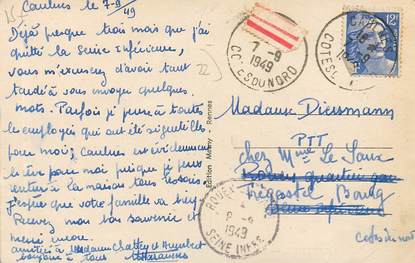 Caulnes le 7-9/49
Déjà presque trois mois que j'ai
quitté la Seine Inférieure,
vous m'excusez d'avoir tant
tardé à vous envoyer quelques
mots. Parfois je pense à toutes
les employés qui ont été si gentilles
pour moi; Caulnes est évidemment
pour moi puisque je peux
rentrer à la maison tous les soirs
J'espère que votre famille va bien
Recevez mon bon souvenir et
merci encore.
amitiés à Madame et Humbert
bonjour à tous
7-9
1949
COTES DU NORD
12F
1949
COTES
Edition Mary - Rennes
Madame Diessmann
PTT
chez Mme Le Saux
Rouen
Trégastel Bourg
Seine Inférieure
Côtes du nord
ROUEN
1949
SEINE INFRE